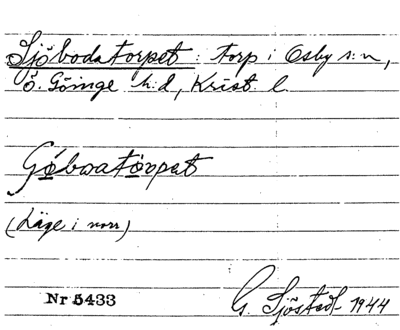 Sjöbodatorpet: torp i Osby s:n,
Ö. Göinge h:d, Krist. l.
Gǿbwatòrpat
(Läge i norr)
Nr 5433
G. Sjöstedt 1944